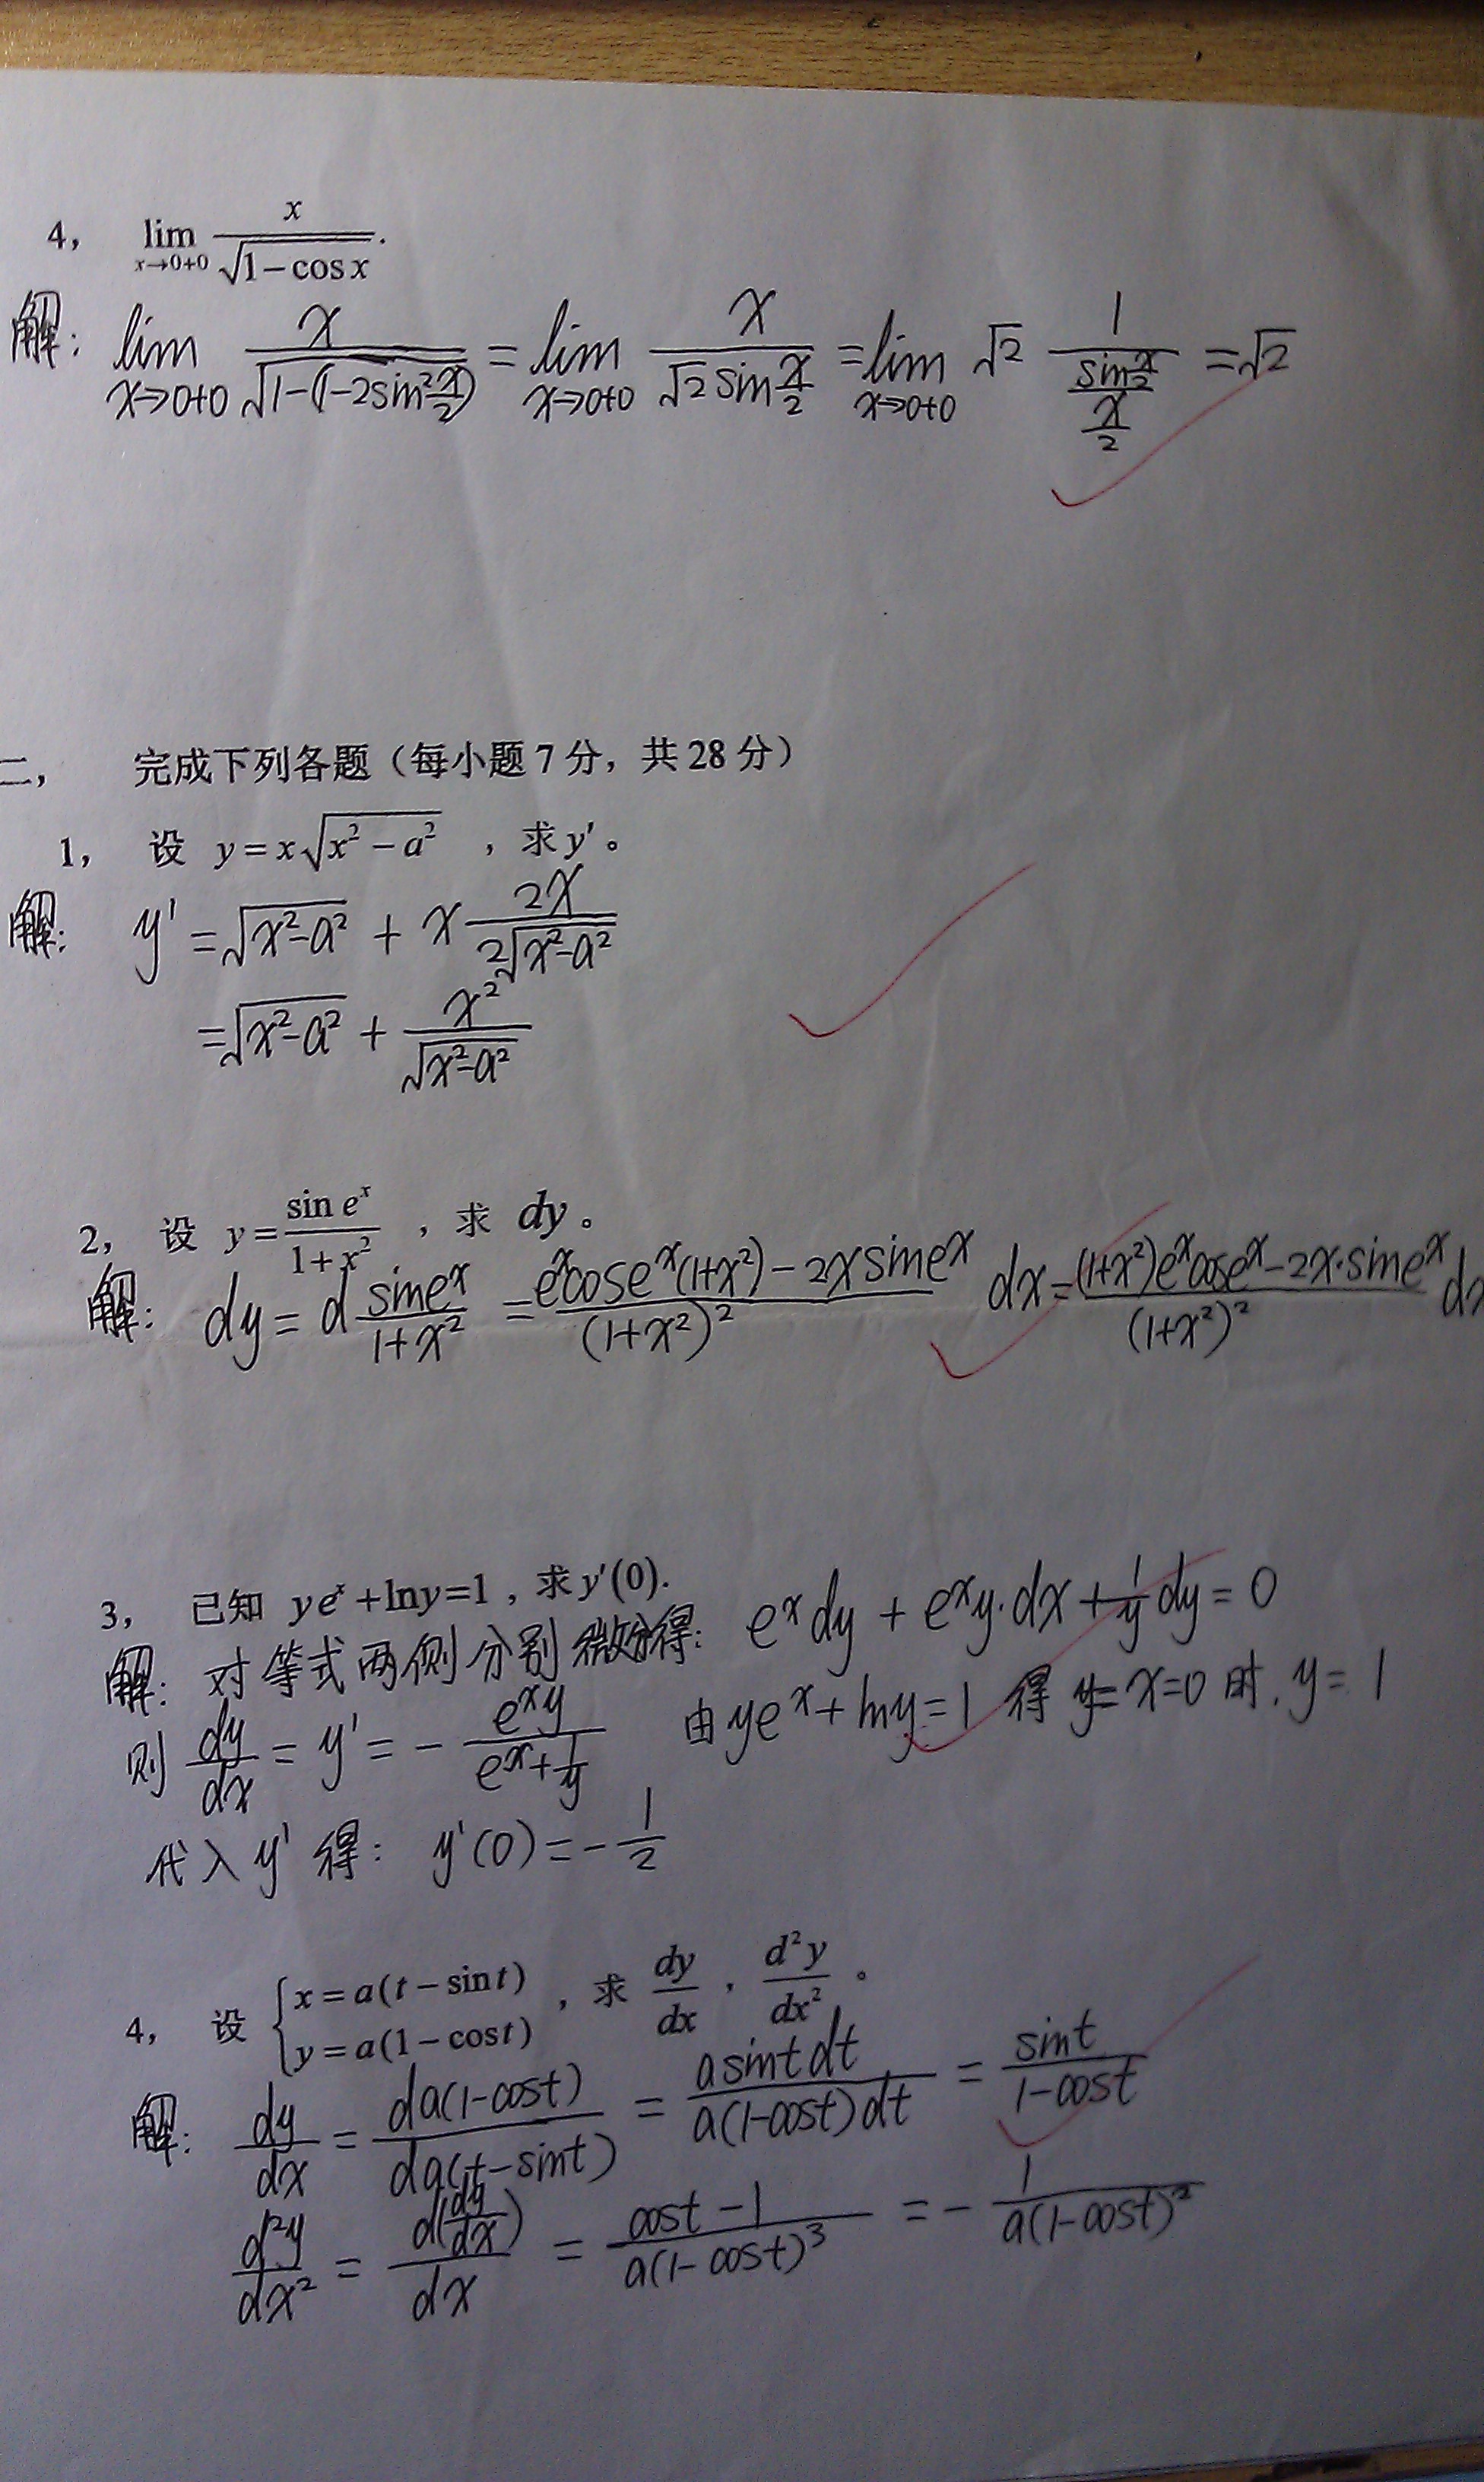 4， lim x→0+0 x/√(1-cos x).
解： lim x→0+0 x/√(1-(1-2sin²x/2)) = lim x→0+0 x/(√2 sin x/2) = lim x→0+0 √2 1/((sin x/2)/(x/2)) = √2
二， 完成下列各题（每小题 7 分，共 28 分）
1， 设 y = x√(x² - a²) ，求 y′ 。
解： y' = √(x²-a²) + x 2x/(2√(x²-a²))
= √(x²-a²) + x²/√(x²-a²)
2， 设 y = sin e^x/(1+x²) ，求 dy 。
解： dy = d sine^x/(1+x²) = (e^x cose^x(1+x²) - 2x sine^x)/(1+x²)² dx = ((1+x²)e^x cose^x - 2x·sine^x)/(1+x²)² dx
3， 已知 ye^x + lny=1，求 y′(0).
解： 对等式两侧分别微分得： e^x dy + e^x y·dx + 1/y dy = 0
则 dy/dx = y' = - e^x y/(e^x + 1/y) 由 ye^x + lny = 1 得 x=0 时. y = 1
代入 y' 得： y'(0) = - 1/2
4， 设 { x = a(t - sin t) y = a(1 - cos t) ，求 dy/dx ， d²y/dx² 。
解： dy/dx = da(1-cost)/da(t-sint) = asint dt/a(1-cost)dt = sint/(1-cost)
d²y/dx² = d(dy/dx)/dx = (cost - 1)/a(1-cost)³ = - 1/a(1-cost)²